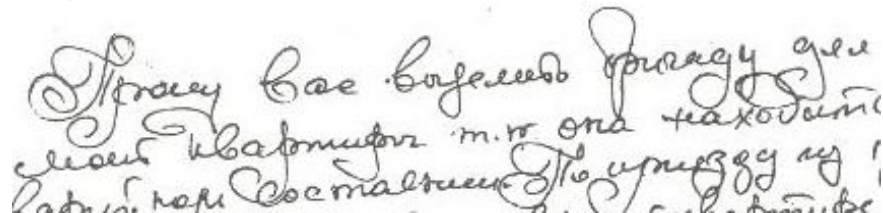 Прошу вас выделить бригаду для
моей квартиры т.к она находитс
состоянии. По приезду из